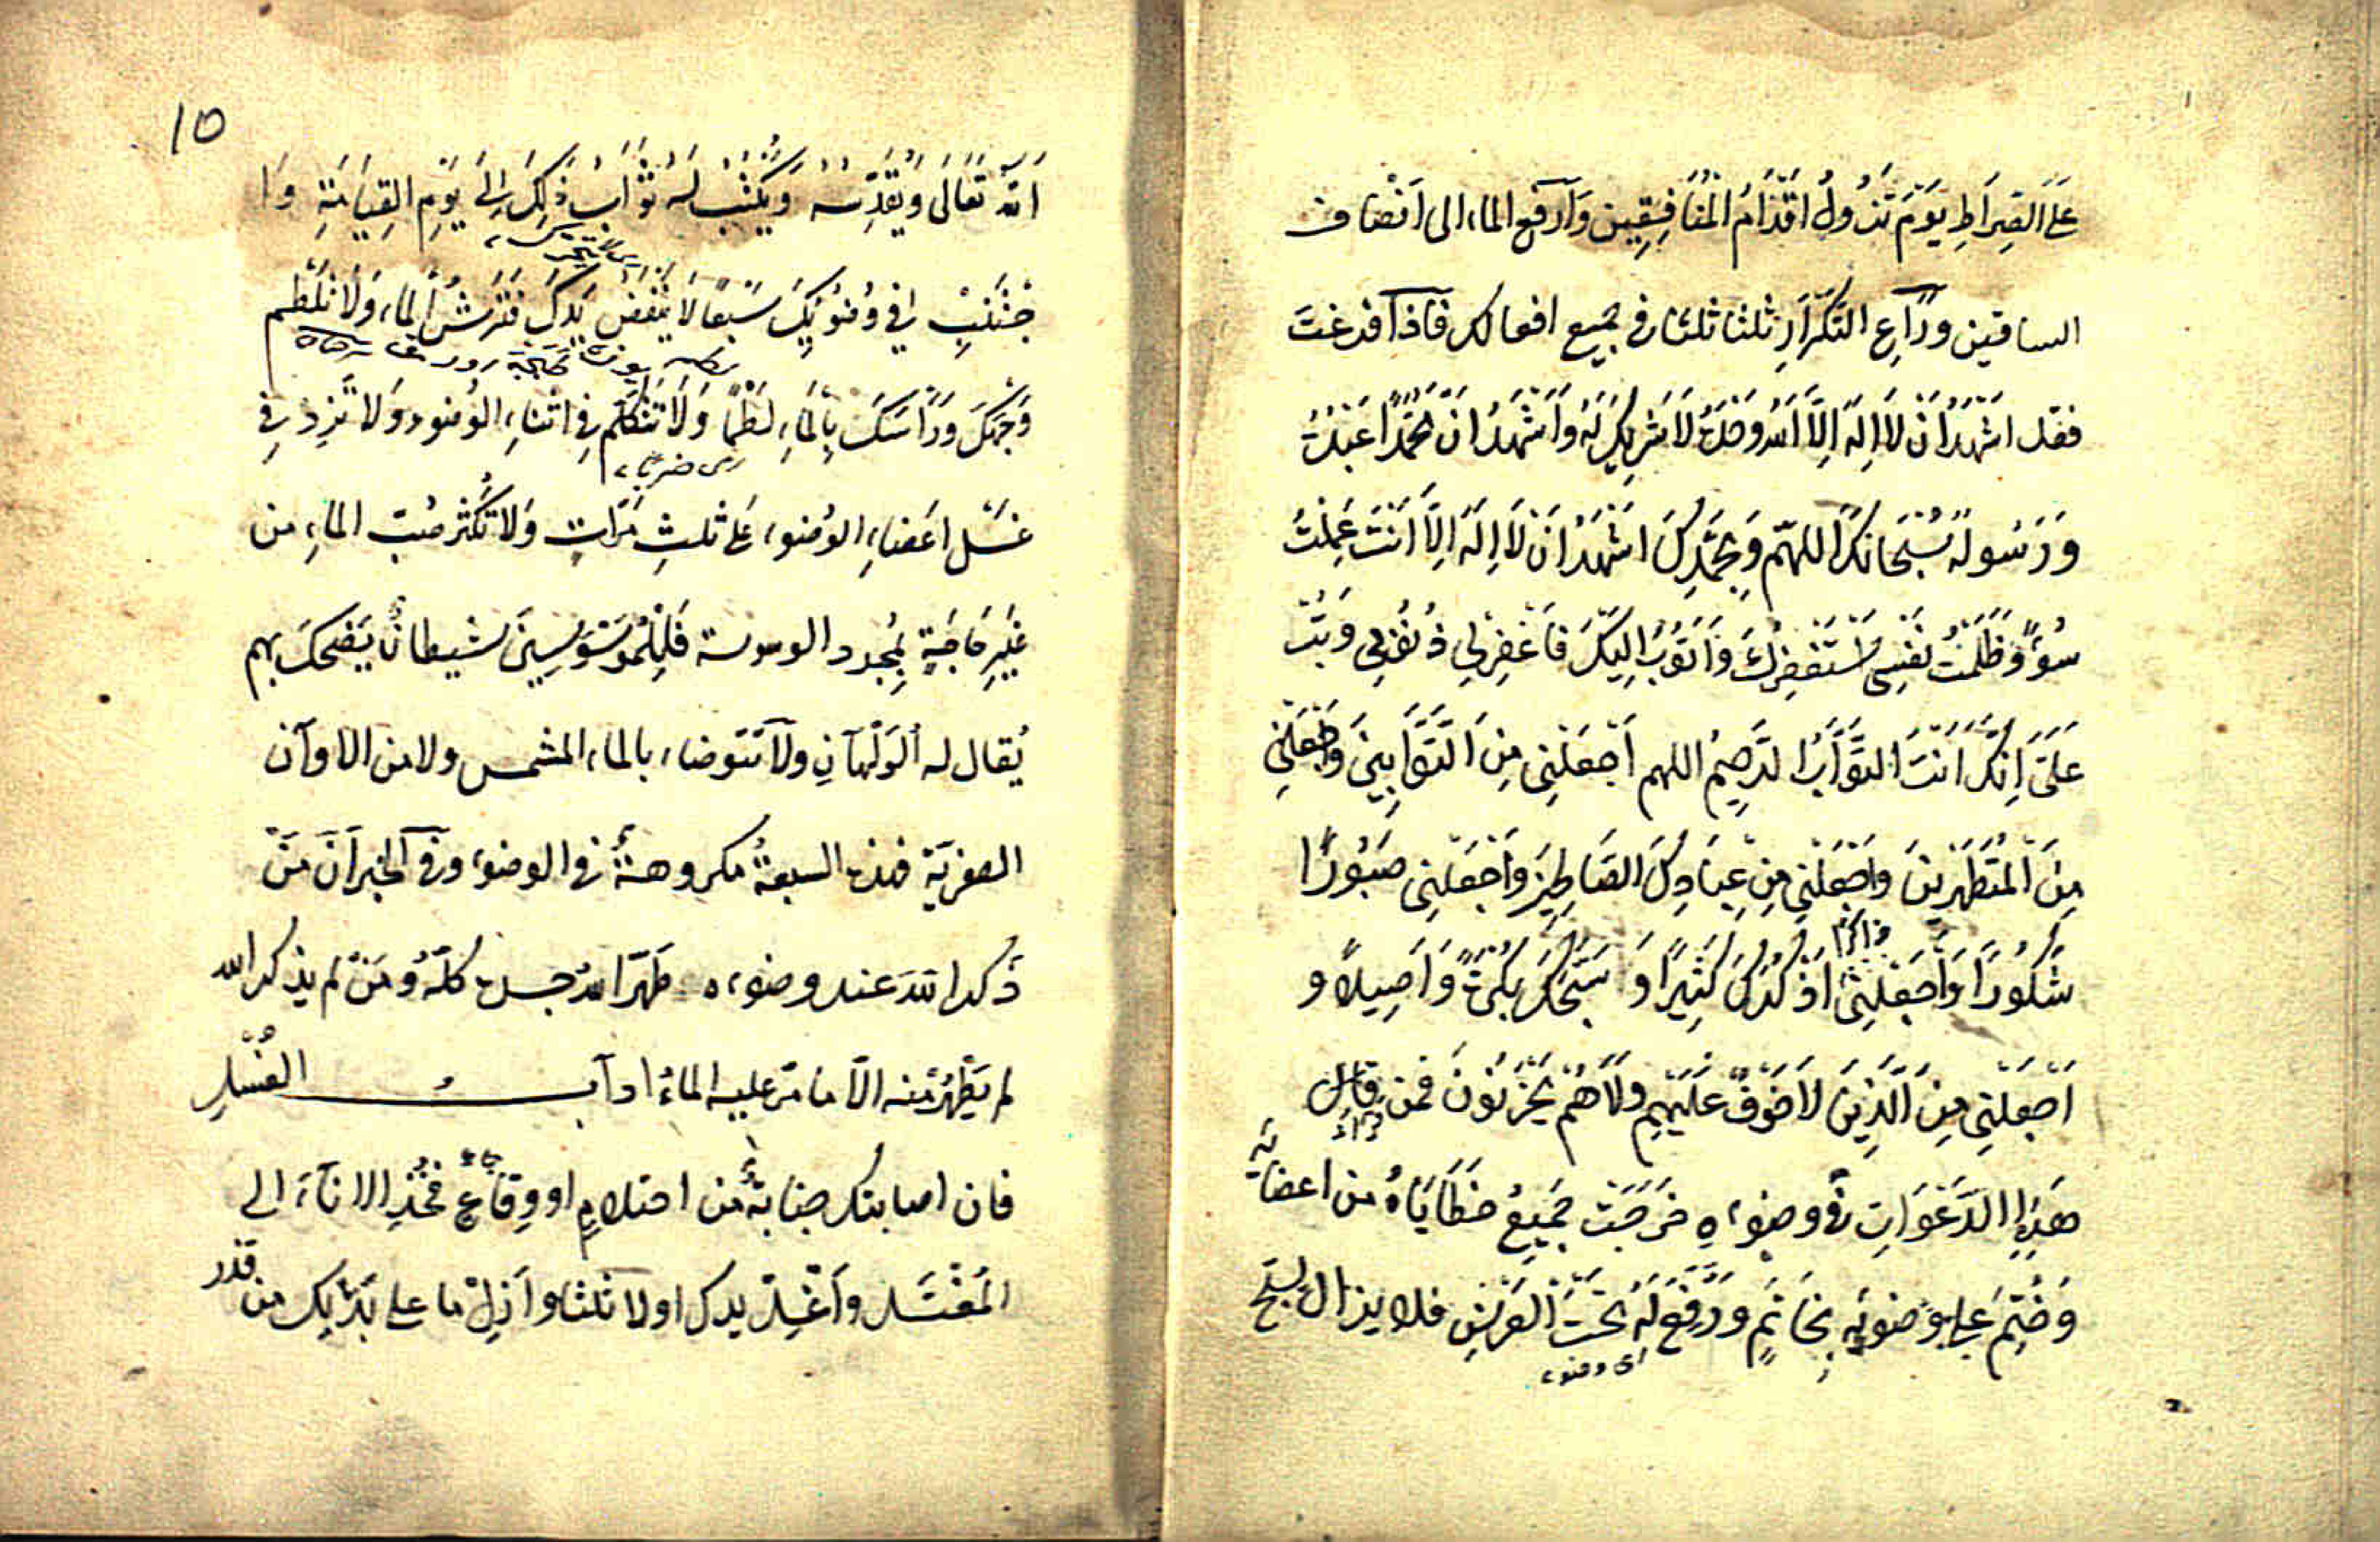 عَلَى الصِّرَاطِ يَوْمَ تَزُولُ اَقْدَامُ الْمُنَافِقِينَ وَاَرْفَعِ الماء الى اَنْصَاف
الساقين وَرَاعِ التَّكْرَارِ ثلثا ثلثا فى جميع افعالك فَاِذَا فرغتَ
فقل اَشْهَدُ اَنْ لَا اِلَهَ اِلَّا اللّٰهُ وَحْدَهُ لَا شَرِيكَ لَهُ وَاَشْهَدُ اَنَّ مُحَمَّدًا عَبْدُهُ
وَرَسُولُهُ سُبْحَانَكَ اللهمّ وَبِحَمْدِكَ اَشْهَدُ اَنْ لَا اِلَهَ اِلَّا اَنْتَ عَمِلْتُ
سُوءً وَظَلَمْتُ نَفْسِى اَسْتَغْفِرُكَ وَاَتُوبُ اِلَيْكَ فَاغْفِرْلِى ذُنُوبِى وَتُبْ
عَلَىَّ اِنَّكَ اَنْتَ التَّوَّابُ الرَّحِيمُ اللهم اجْعَلْنِى مِنَ التَّوَّابِينَ وَاجْعَلْنِى
مِنَ الْمُتَطَهِّرِينَ وَاجْعَلْنِى مِنْ عِبَادِكَ الصَّالِحِينَ وَاجْعَلْنِى صَبُورًا
شَكُورًا وَاجْعَلْنِى اَذْكُرُكَ كَثِيرًا وَ سَبِّحُكَ بُكْرَةً وَاَصِيلًا و
اجْعَلْنِى مِنَ الَّذِينَ لَا خَوْفٌ عَلَيْهِمْ وَلَا هُمْ يَحْزَنُونَ فمن قال
قراء
هَذِهِ الدَّعَوَاتِ فى وضوءه خَرَجَتْ جَمِيعُ خَطَايَاهُ من اعضائه
وَخُتِمَ على وضوئِهِ بِخَاتَمٍ وَرُفِعَ لَهُ تَحْتَ الْعَرْشِ فلا يزال يسبّح
اى وضوء
10
اللّٰهَ تَعَالَى وَيُقَدِّسُهُ وَيُكْتَبُ لَهُ ثَوَابُ ذَلِكَ اِلَى يَوْمِ الْقِيَامَةِ وَا
جْتَنِبْ فِى وُضُوئِكَ سَبْعًا لَا تَنْفُضْ يَدَكَ فَتَرُشَّ الْمَاءَ وَلَا تَلْطِمْ
وَجْهَكَ وَرَاْسَكَ بِالْمَاءِ لَطْمًا وَلَا تَتَكَلَّمْ فِى اَثْنَاءِ الْوُضُوء وَلَا تَزِدْ فِى
اى ضربا
غَسْلِ اَعْضَاءِ الْوُضُوء عَلَى ثَلَثِ مَرَّاتٍ وَلَا تُكْثِرْ صَبَّ الْمَاءِ مِنْ
غَيْرِ حَاجَةٍ بِمُجرد الوسوسة فَلِلْمُوَسْوِسِينَ شيطانٌ يَضْحَكُ بهم
يُقال له اَلْوَلْهَان وَلَا تَتَوضاء بالماء المشمس ولا من الاوآن
الصفريّة فهذه السبعةُ مكروهةٌ فى الوضوء وفى الخبر اَنَّ مَنْ
ذَكَرَ اللّٰهَ عند وضوءه طهّر اللهُ جسده كلّهُ وَمَنْ لم يذكر الله
لم يَطْهُرْ منه الّا ما مَرّ عليه الماءُ ادآب الغُسْلِ
فان اصابتك جنابةٌ من احتلامٍ او وِقَاعٍ فَخُذِ الاناءَ الى
جماع
الْمُغْتَسَل وَاغْسِلْ يدك اولا ثلثا وَاَزِلْ ما على بَدَنِكَ من قذر